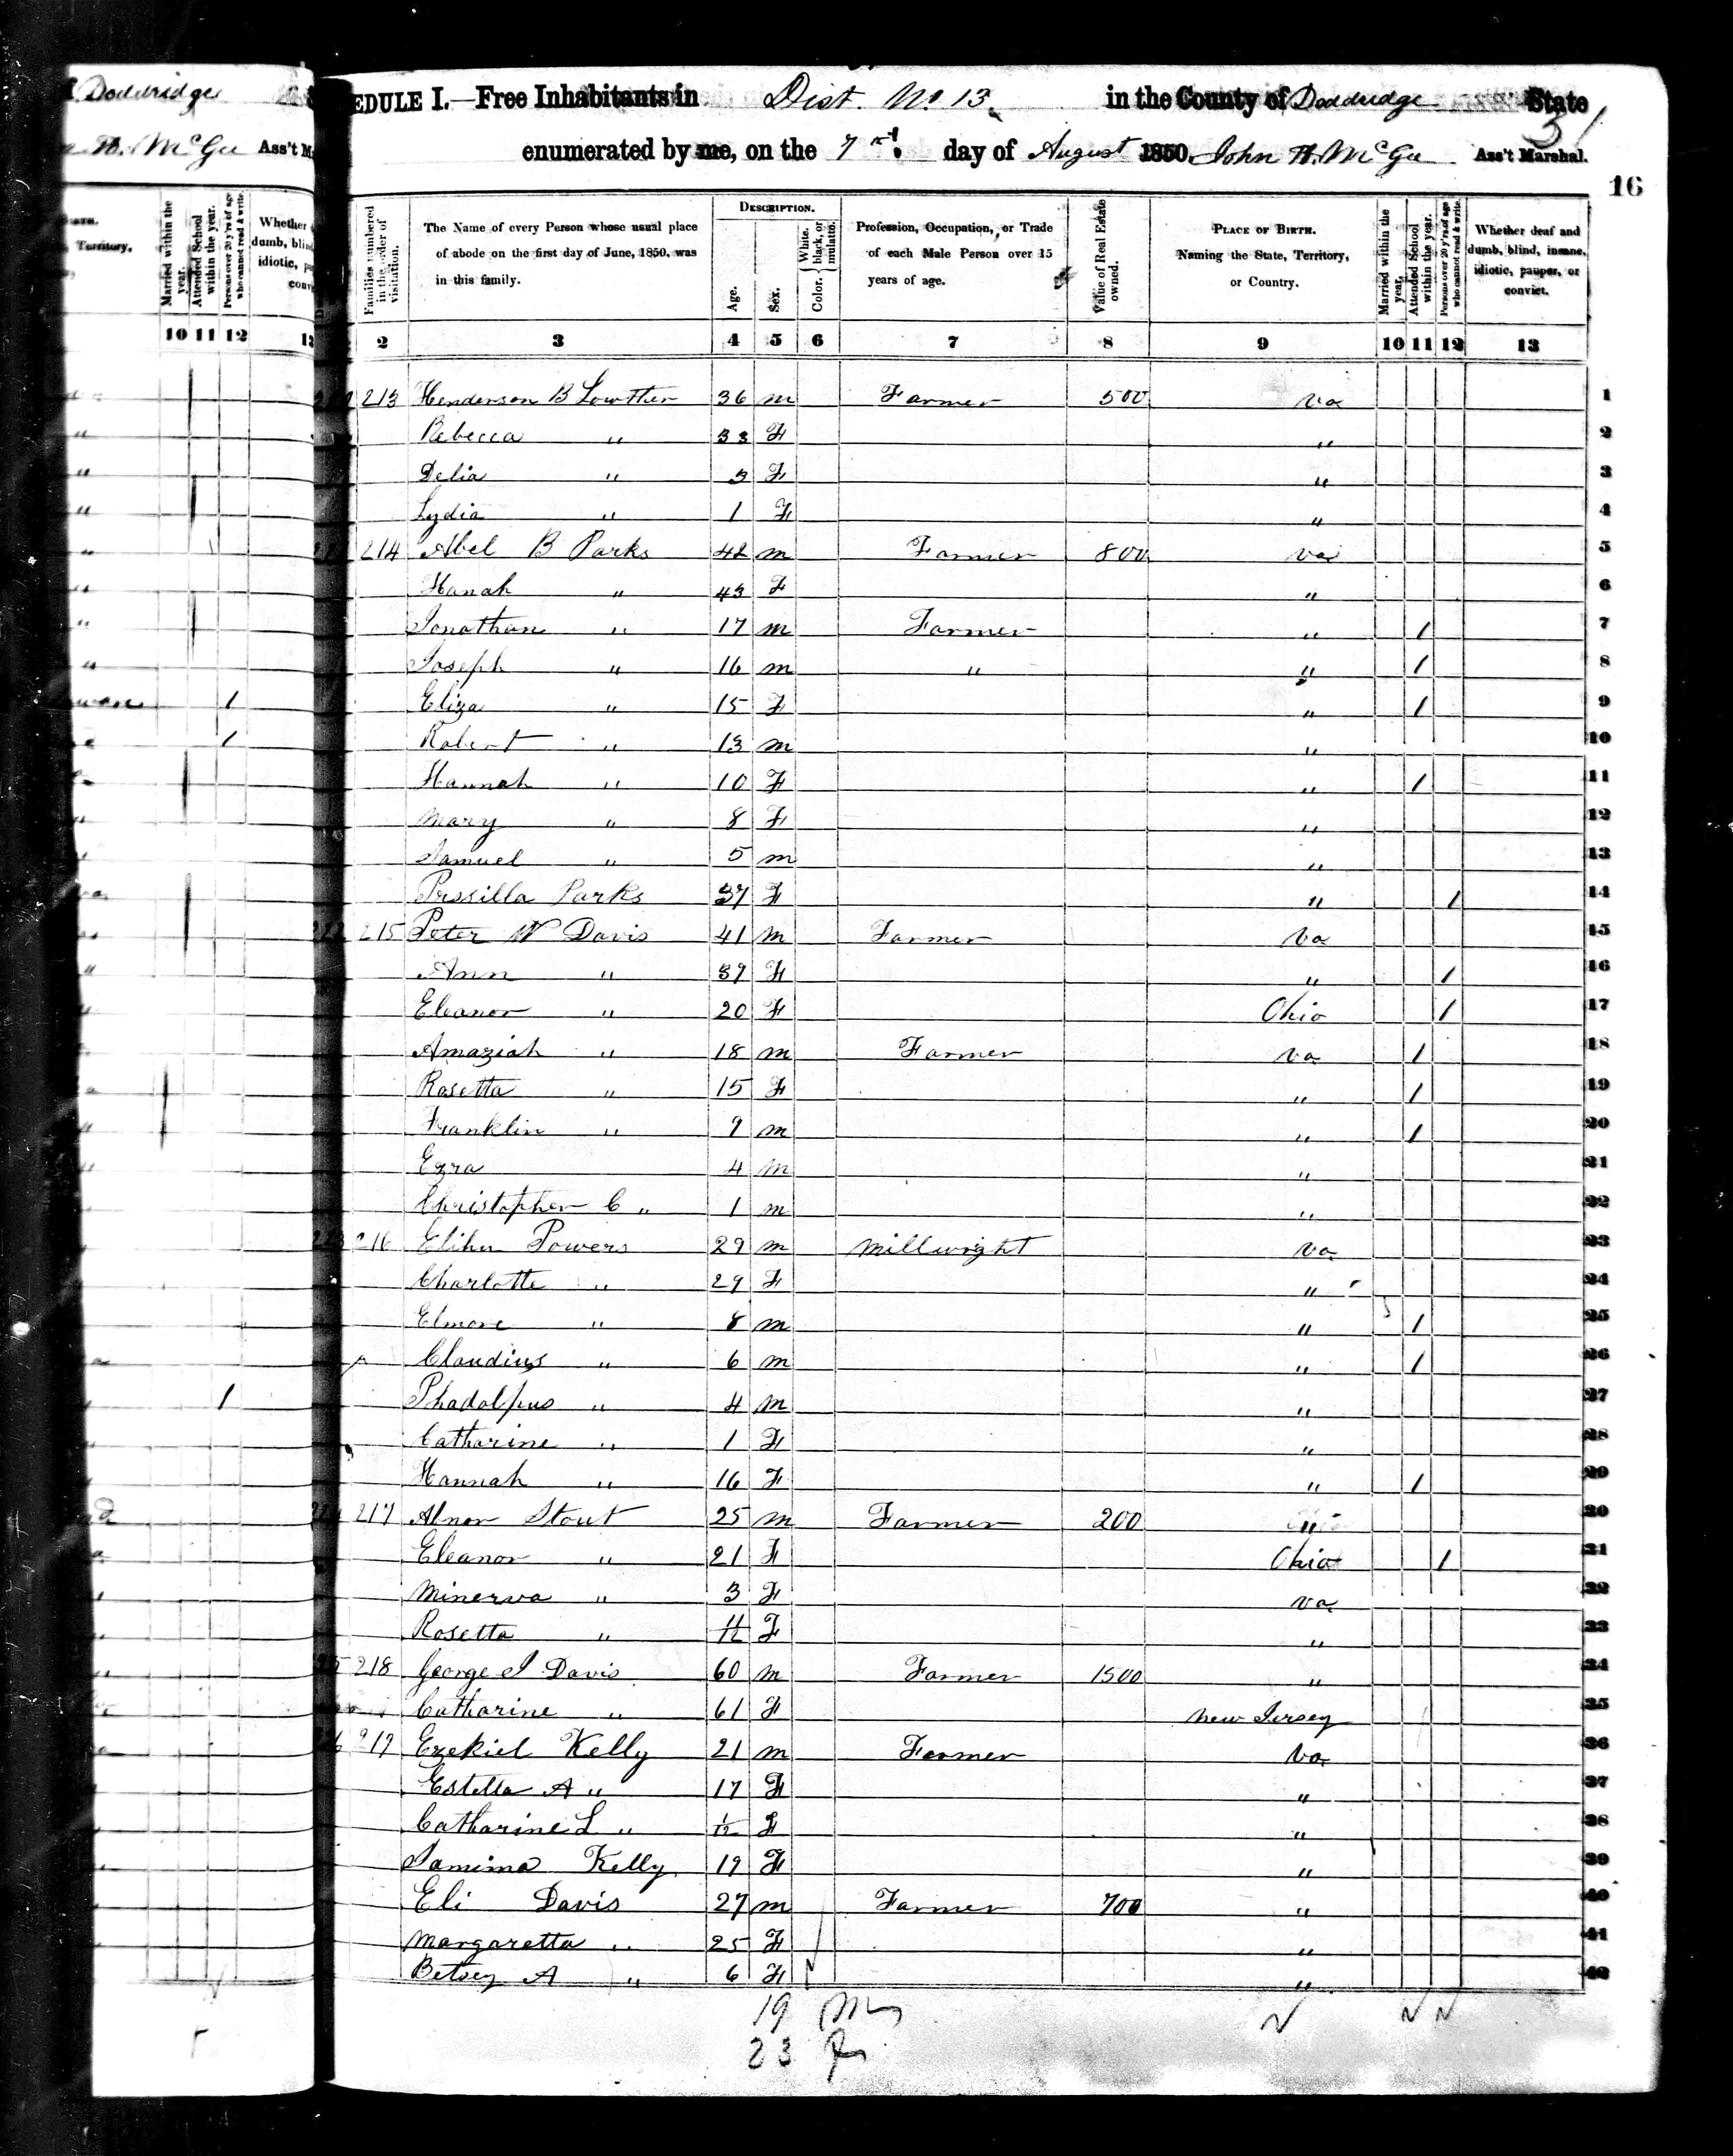 Doddridge
H. McGee Ass't M
EDULE I.—Free Inhabitants in Dist. No 13 in the County of Doddridge State
31
enumerated by me, on the 7th day of August 1850. John H. McGee Ass't Marshal.
16
Territory,
Married within the year.
Attended School within the year.
Persons over 20 y'rs of age who cannot read & write
Whether
dumb, blin
idiotic,
10 11 12
Families numbered in the order of visitation.
The Name of every Person whose usual place of abode on the first day of June, 1850, was in this family.
Description.
Age.
Sex.
Color. { White, black, or mulatto.
Profession, Occupation, or Trade of each Male Person over 15 years of age.
Value of Real Estate owned.
Place of Birth. Naming the State, Territory, or Country.
Married within the year.
Attended School within the year.
Persons over 20 y'rs of age who cannot read & write.
Whether deaf and dumb, blind, insane, idiotic, pauper, or convict.
2 3 4 5 6 7 8 9 10 11 12 13
213 Henderson B Lowther 36 m Farmer 500 Va 1
Rebecca " 33 F " 2
Delia " 3 F " 3
Lydia " 1 F " 4
214 Abel B Parks 42 m Farmer 800 Va 5
Hanah " 43 F " 6
Jonathan " 17 m Farmer " 1 7
Joseph " 16 m " " 1 8
Eliza " 15 F " 1 9
Robert " 13 m " 10
Hannah " 10 F " 1 11
Mary " 8 F " 12
Samuel " 5 m " 13
Prssilla Parks 37 F " 1 14
215 Peter W Davis 41 m Farmer Va 15
Ann " 39 F " 1 16
Eleanor " 20 F Ohio 1 17
Amaziah " 18 m Farmer Va 1 18
Rosetta " 15 F " 1 19
Franklin " 9 m " 1 20
Ezra 4 m " 21
Christopher C " 1 m " 22
216 Elihu Powers 29 m Millwright Va 23
Charlotte " 29 F " 24
Elmore " 8 m " 1 25
Claudius " 6 m " 1 26
Phadolpus " 4 m " 27
Catharine " 1 F " 28
Hannah " 16 F " 1 29
217 Abner Stout 25 m Farmer 200 " 30
Eleanor " 21 F Ohio 1 31
Minerva " 3 F Va 32
Rosetta " F " 33
218 George I Davis 60 m Farmer 1500 " 34
Catharine " 61 F New Jersey 35
219 Ezekiel Kelly 21 m Farmer Va 36
Estella A " 17 F " 37
Catharine L " 1/12 F " 38
Jamima Kelly 19 F " 39
Eli Davis 27 m Farmer 700 " 40
Margaretta " 25 F " 41
Betsey A " 6 F " 42
19 M
23 F